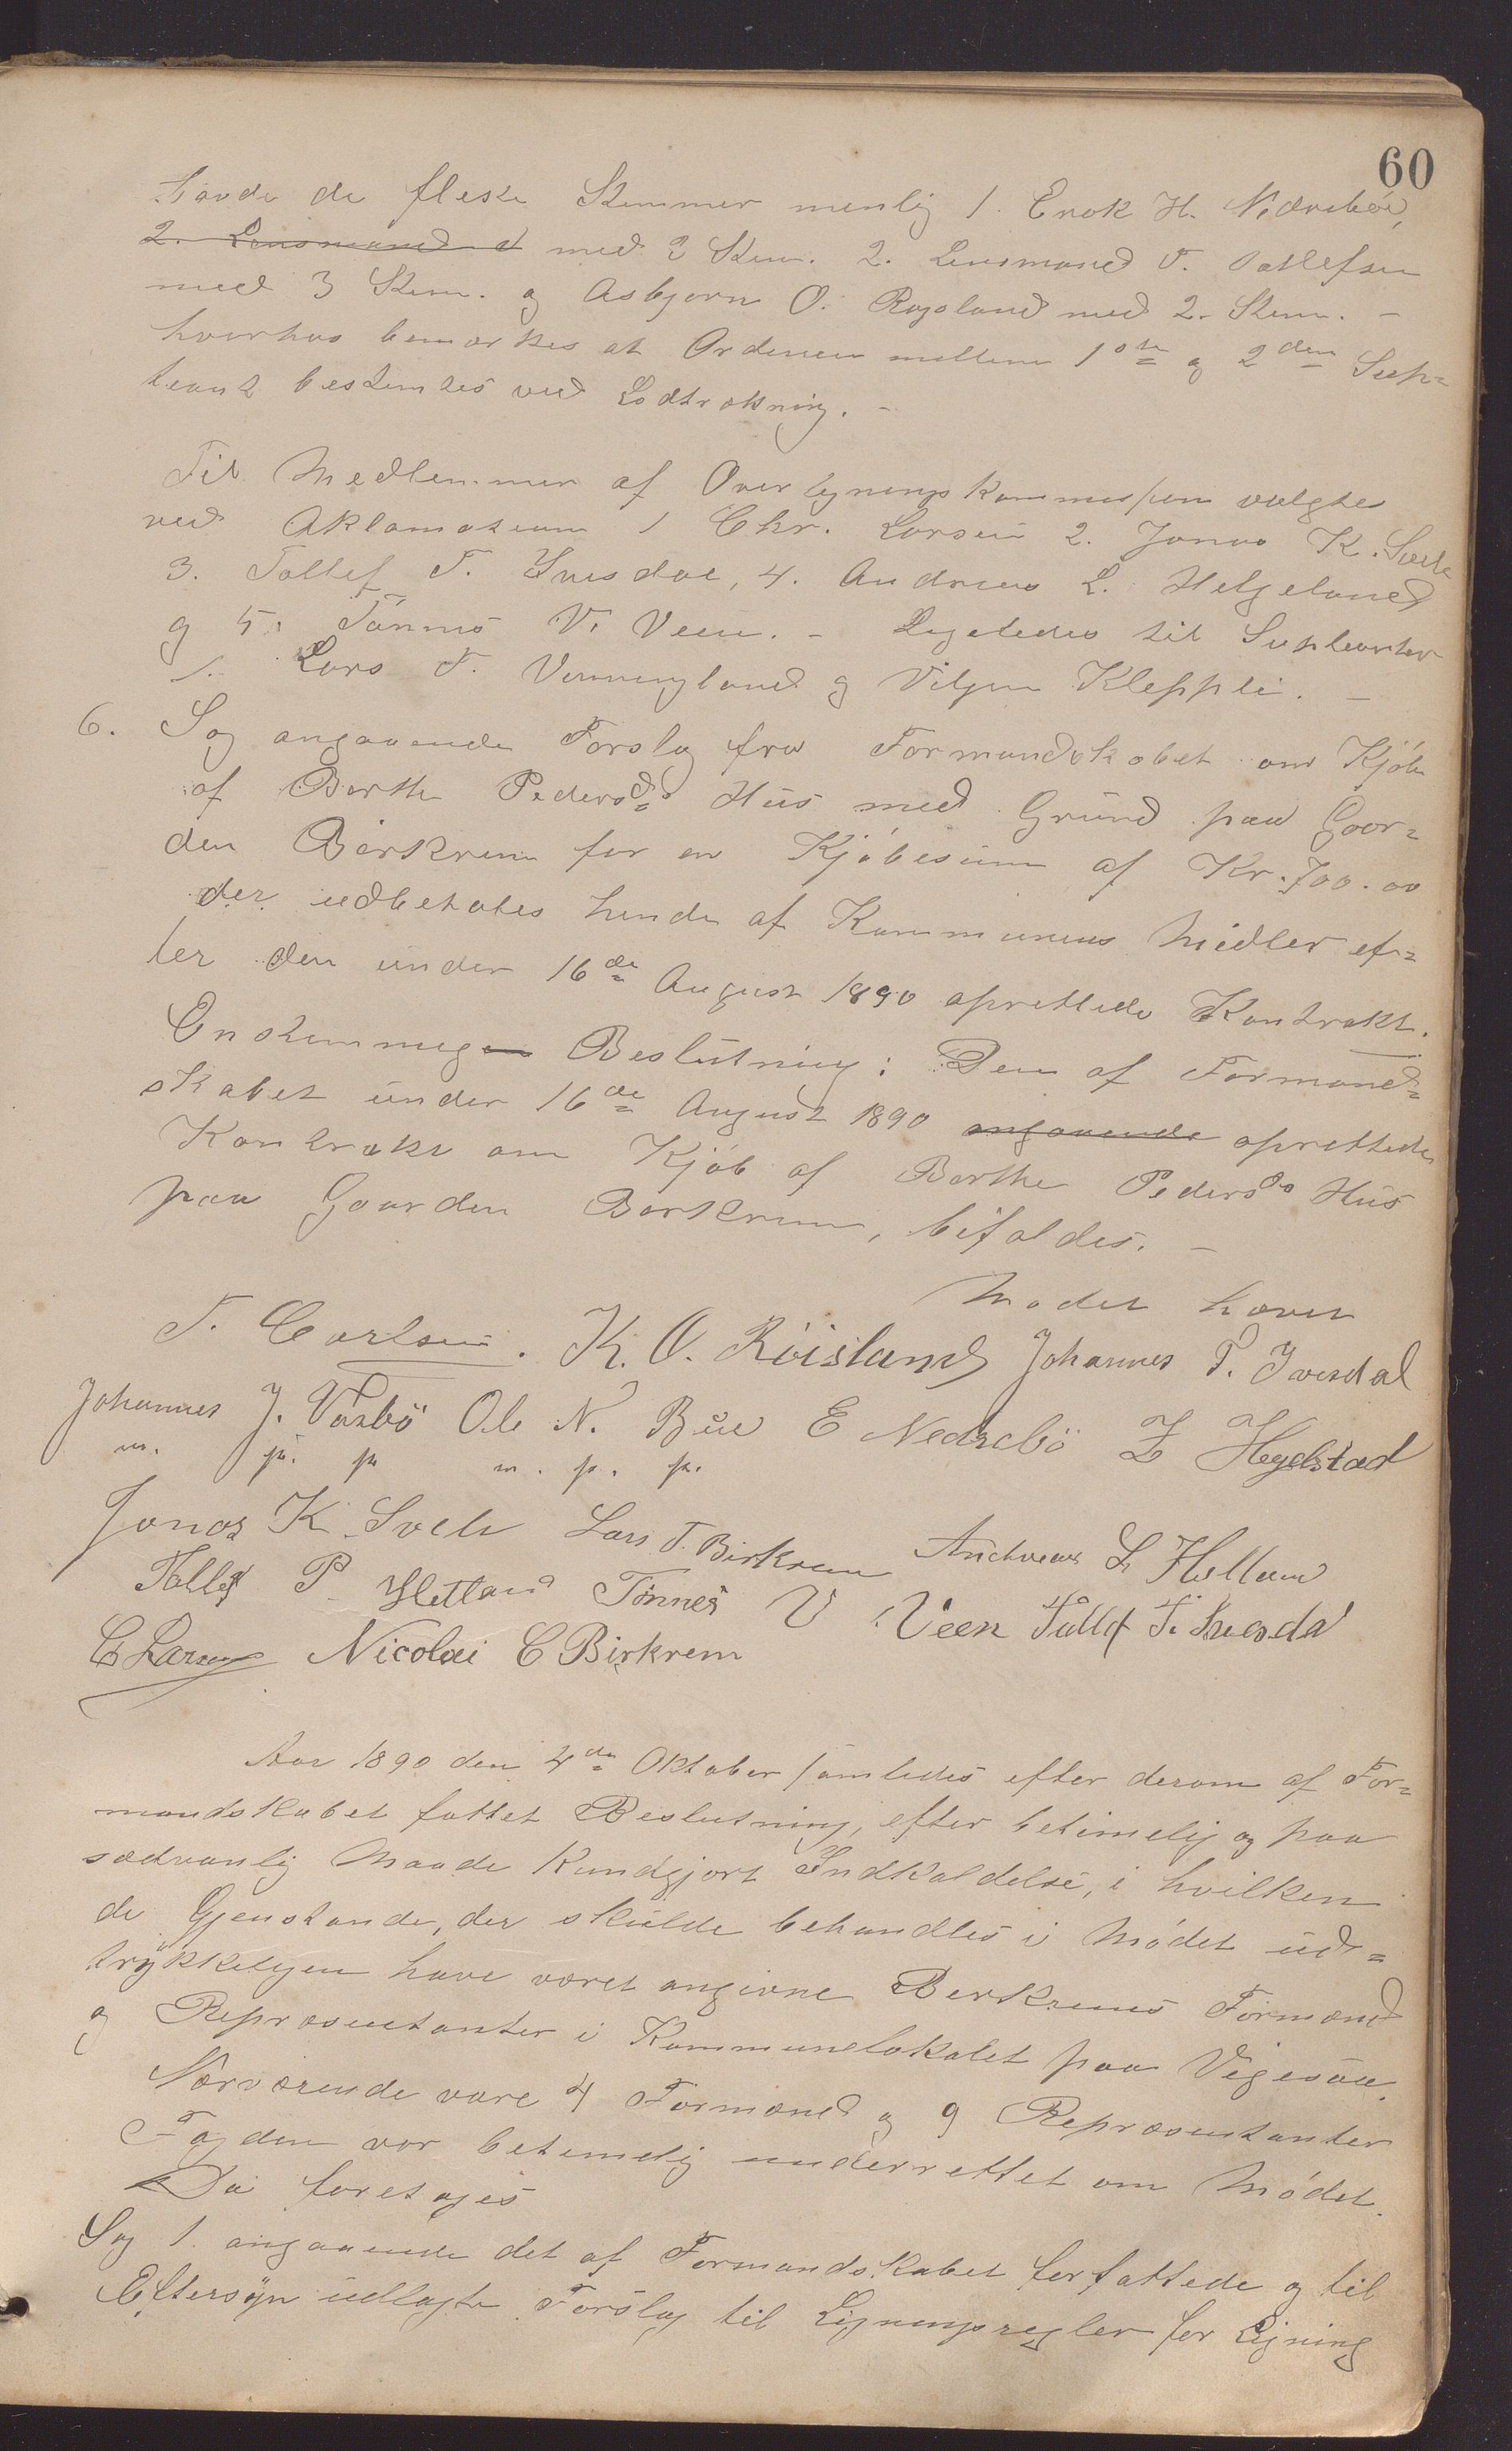 60
havde de fleste Stemmer nemlig 1. Enok H. Nedrebøe,
2. Lensmand med 3 Stem. 2. Lensmand T. Tollefsen
med 3 Stem. og Asbjørn O. Røysland med 2. Stem. –
hvorhos bemærkes at Ordenen mellem 1ste og 2den Sup=
leant bestemtes ved Lodtrækning. –
Til Medlemmer af Overligningskommissjon valgtes
ved Aklamatsion 1 Chr. Larsen 2. Jonas K. Svele
3. Tollef T. Ivesdal, 4. Andreas L. Helgeland
og 5. Tønnes V. Veen. – Ligeledes til Supleanter
1. Lars T. Vinningland og Vilgen Kleppli. –
6. Sag angaaende Forslag fra Formandskabet om Kjøb
af Berthe Pedersd's Hus med Grund paa Gaar=
den Birkrem for en Kjøbesum af Kr. 700.00
der udbetales hende af Kommunens Midler ef=
ter den under 16de August 1890 oprettede Kontrakt.
Enstemmig Beslutning: Den af Formand=
skabet under 16de August 1890 angaaende oprettede
Kontrakt om Kjøb af Berthe Pedersds Hus
paa Gaarden Birkrem, bifaldes. –
Mødet hævet
T. Carlsen. K. O. Röisland Johannes P. Ivesdal
Johannes J. Vasbö Ole N. Bue E Nedrebö Z Hegelstad
m. p. p m. p. p.
Jonas K. Svele Lars T. Birkrem Andreas L Hellan
Tollef P. Hetland Tönnes V. Veen Tollef T. Ivesdal
C Larsen Nicolai C Birkrem
Aar 1890 den 4de Oktober samledes efter derom af For=
mandskabet fattet Beslutning, efter betimelig og paa
sædvanlig Maade kundgjort Indkaldelse, i hvilken
de Gjenstande, der skulde behandles i Mødet ud=
trykkeligen have været angivne Berkrems Formænd
og Repræsentanter i Kommunelokalet paa Vigesaa.
Nærværende vare 4 Formænd og 9 Repræsentanter
Fogden var betimelig underrettet om Mødet.
Da foretoges
Sag 1. angaaende det af Formandskabet forfattede og til
Eftersyn udlagte Forslag til Ligningsregler for Ligning